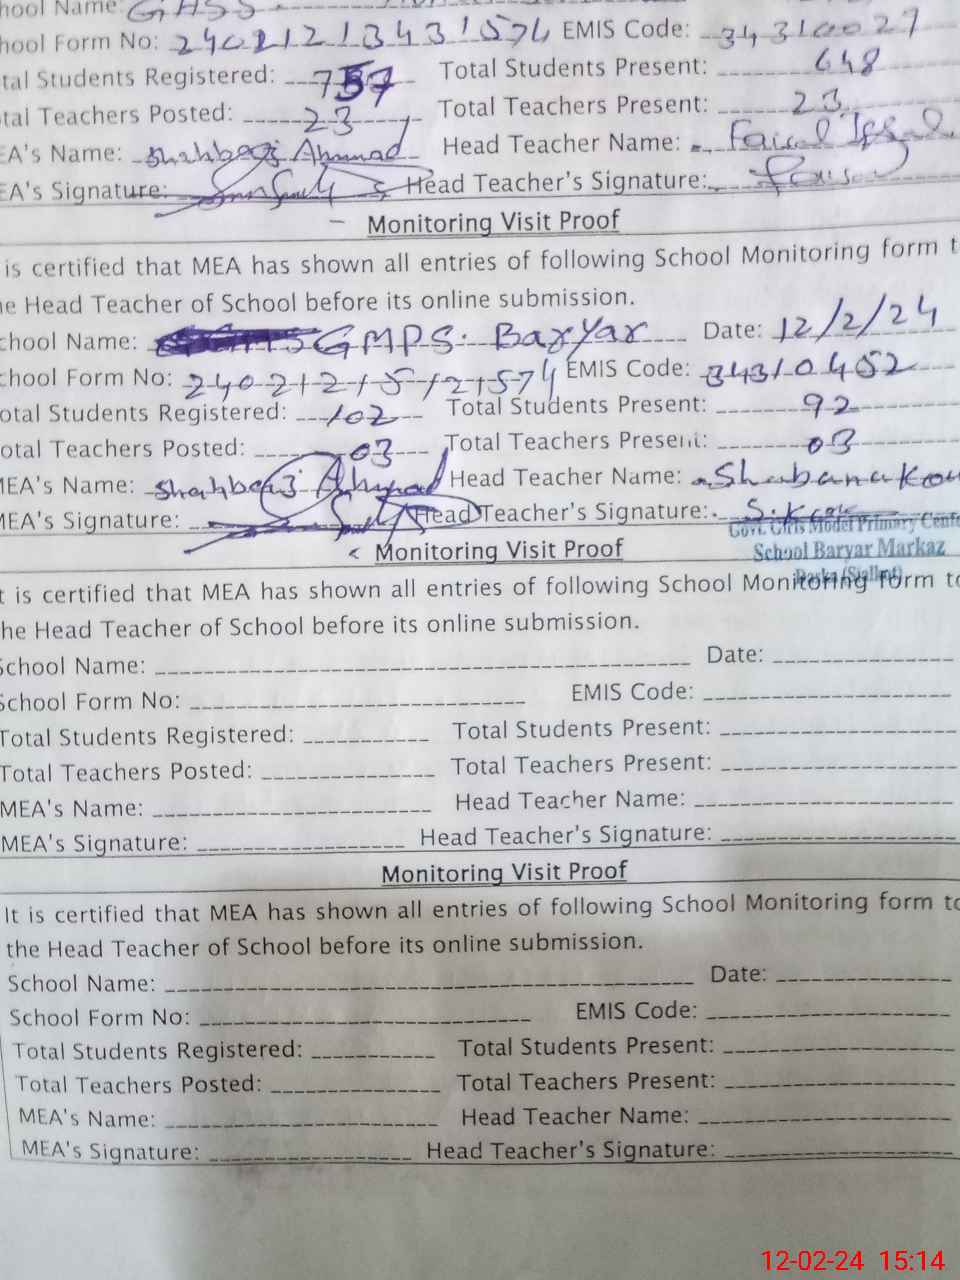 hool Name: GHSS
hool Form No: 24021213431574 EMIS Code: 34310027
tal Students Registered: 757 Total Students Present: 648
tal Teachers Posted: 23 Total Teachers Present: 23
EA's Name: Shahbaz Ahmad Head Teacher Name: Faisal
EA's Signature: Head Teacher's Signature:
Monitoring Visit Proof
is certified that MEA has shown all entries of following School Monitoring form t
e Head Teacher of School before its online submission.
chool Name: GMPS. Baryar Date: 12/2/24
chool Form No: 24021215121574 EMIS Code: 34310452
otal Students Registered: 102 Total Students Present: 92
otal Teachers Posted: 03 Total Teachers Present: 03
MEA's Name: Shahbaz Ahmad Head Teacher Name: Shabana Kou
MEA's Signature: Head Teacher's Signature: S.Kou
Govt. Girls Model Primary Cente
School Baryar Markaz
Monitoring Visit Proof
t is certified that MEA has shown all entries of following School Monitoring form to
he Head Teacher of School before its online submission.
School Name: Date:
School Form No: EMIS Code:
Total Students Registered: Total Students Present:
Total Teachers Posted: Total Teachers Present:
MEA's Name: Head Teacher Name:
MEA's Signature: Head Teacher's Signature:
Monitoring Visit Proof
It is certified that MEA has shown all entries of following School Monitoring form to
the Head Teacher of School before its online submission.
School Name: Date:
School Form No: EMIS Code:
Total Students Registered: Total Students Present:
Total Teachers Posted: Total Teachers Present:
MEA's Name: Head Teacher Name:
MEA's Signature: Head Teacher's Signature:
12-02-24 15:14